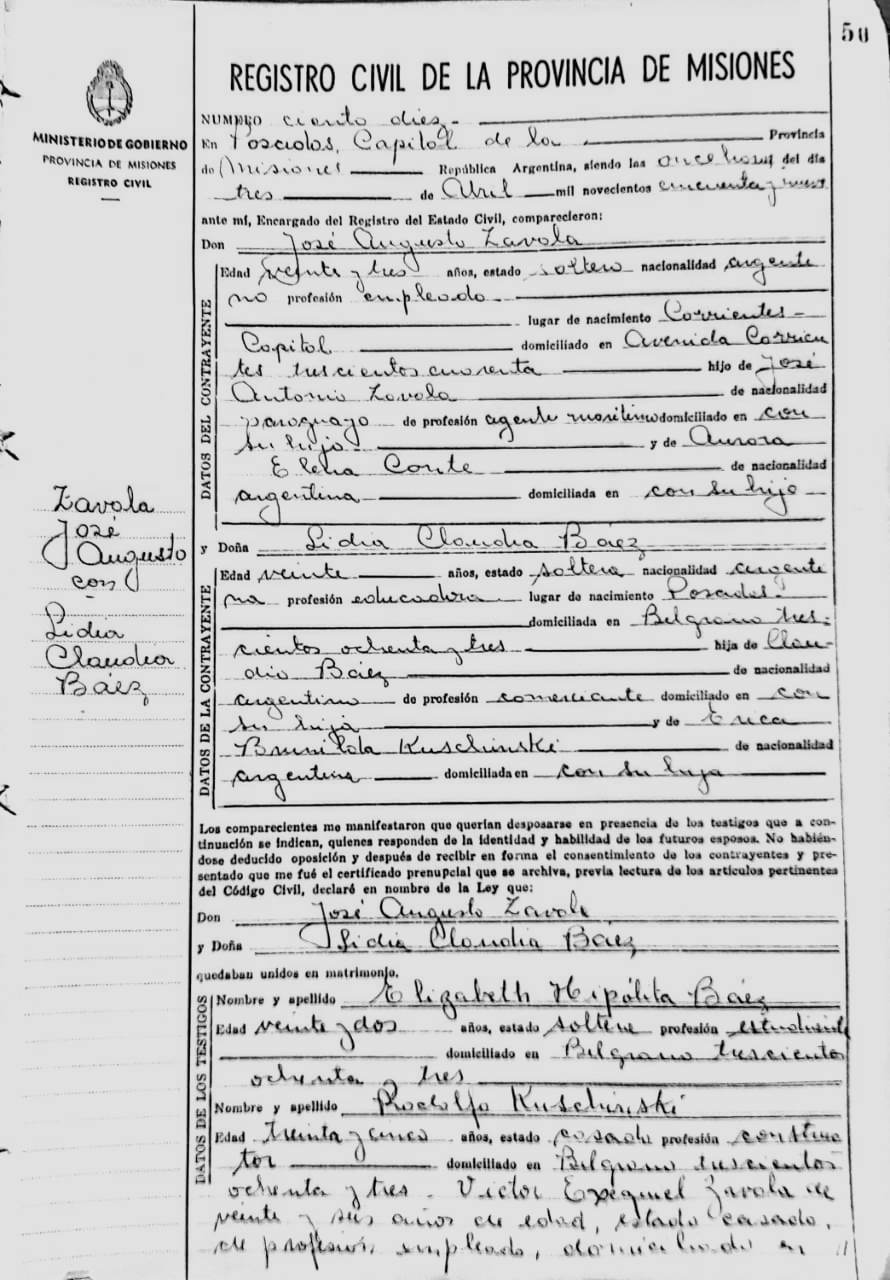 50
MINISTERIO DE GOBIERNO
PROVINCIA DE MISIONES
REGISTRO CIVIL
Zavala
José
Augusto
con
Lidia
Claudia
Báez
REGISTRO CIVIL DE LA PROVINCIA DE MISIONES
NUMERO ciento diez.-
En Posadas, Capital de la Provincia
de Misiones República Argentina, siendo las once horas del día
tres de Abril mil novecientos cincuenta y nueve
ante mí, Encargado del Registro del Estado Civil, comparecieron:
Don José Augusto Zavala
DATOS DEL CONTRAYENTE
Edad veinte y tres años, estado soltero nacionalidad argenti
no profesión empleado
lugar de nacimiento Corrientes-
Capital domiciliado en Avenida Corrien
tes trescientos cuarenta hijo de José
Antonio Zavala de nacionalidad
paraguayo de profesión agente marítimo domiciliado en con
su hijo y de Aurora
Elena Conte de nacionalidad
argentina domiciliada en con su hijo
y Doña Lidia Claudia Báez
DATOS DE LA CONTRAYENTE
Edad veinte años, estado soltera nacionalidad argenti
na profesión educadora lugar de nacimiento Posadas.
domiciliada en Belgrano tres-
cientos ochenta y tres hija de Clau-
dio Báez de nacionalidad
argentino de profesión comerciante domiciliado en con
su hija y de Erica
Brunilda Kuschinski de nacionalidad
argentina domiciliada en con su hija
Los comparecientes me manifestaron que querían desposarse en presencia de los testigos que a con-
tinuación se indican, quienes responden de la identidad y habilidad de los futuros esposos. No habién-
dose deducido oposición y después de recibir en forma el consentimiento de los contrayentes y pre-
sentado que me fué el certificado prenupcial que se archiva, previa lectura de los artículos pertinentes
del Código Civil, declaré en nombre de la Ley que:
Don José Augusto Zavala
y Doña Lidia Claudia Báez
quedaban unidos en matrimonio.
DATOS DE LOS TESTIGOS
Nombre y apellido Elizabeth Hipólita Báez
Edad veinte y dos años, estado soltera profesión estudiante
domiciliado en Belgrano trescientos
ochenta y tres
Nombre y apellido Rodolfo Kuschinski
Edad treinta y cinco años, estado casado profesión construc
tor domiciliado en Belgrano trescientos
ochenta y tres. Victor Exequiel Zavala de
veinte y seis años de edad, estado casado,
de profesión empleado, domiciliado en